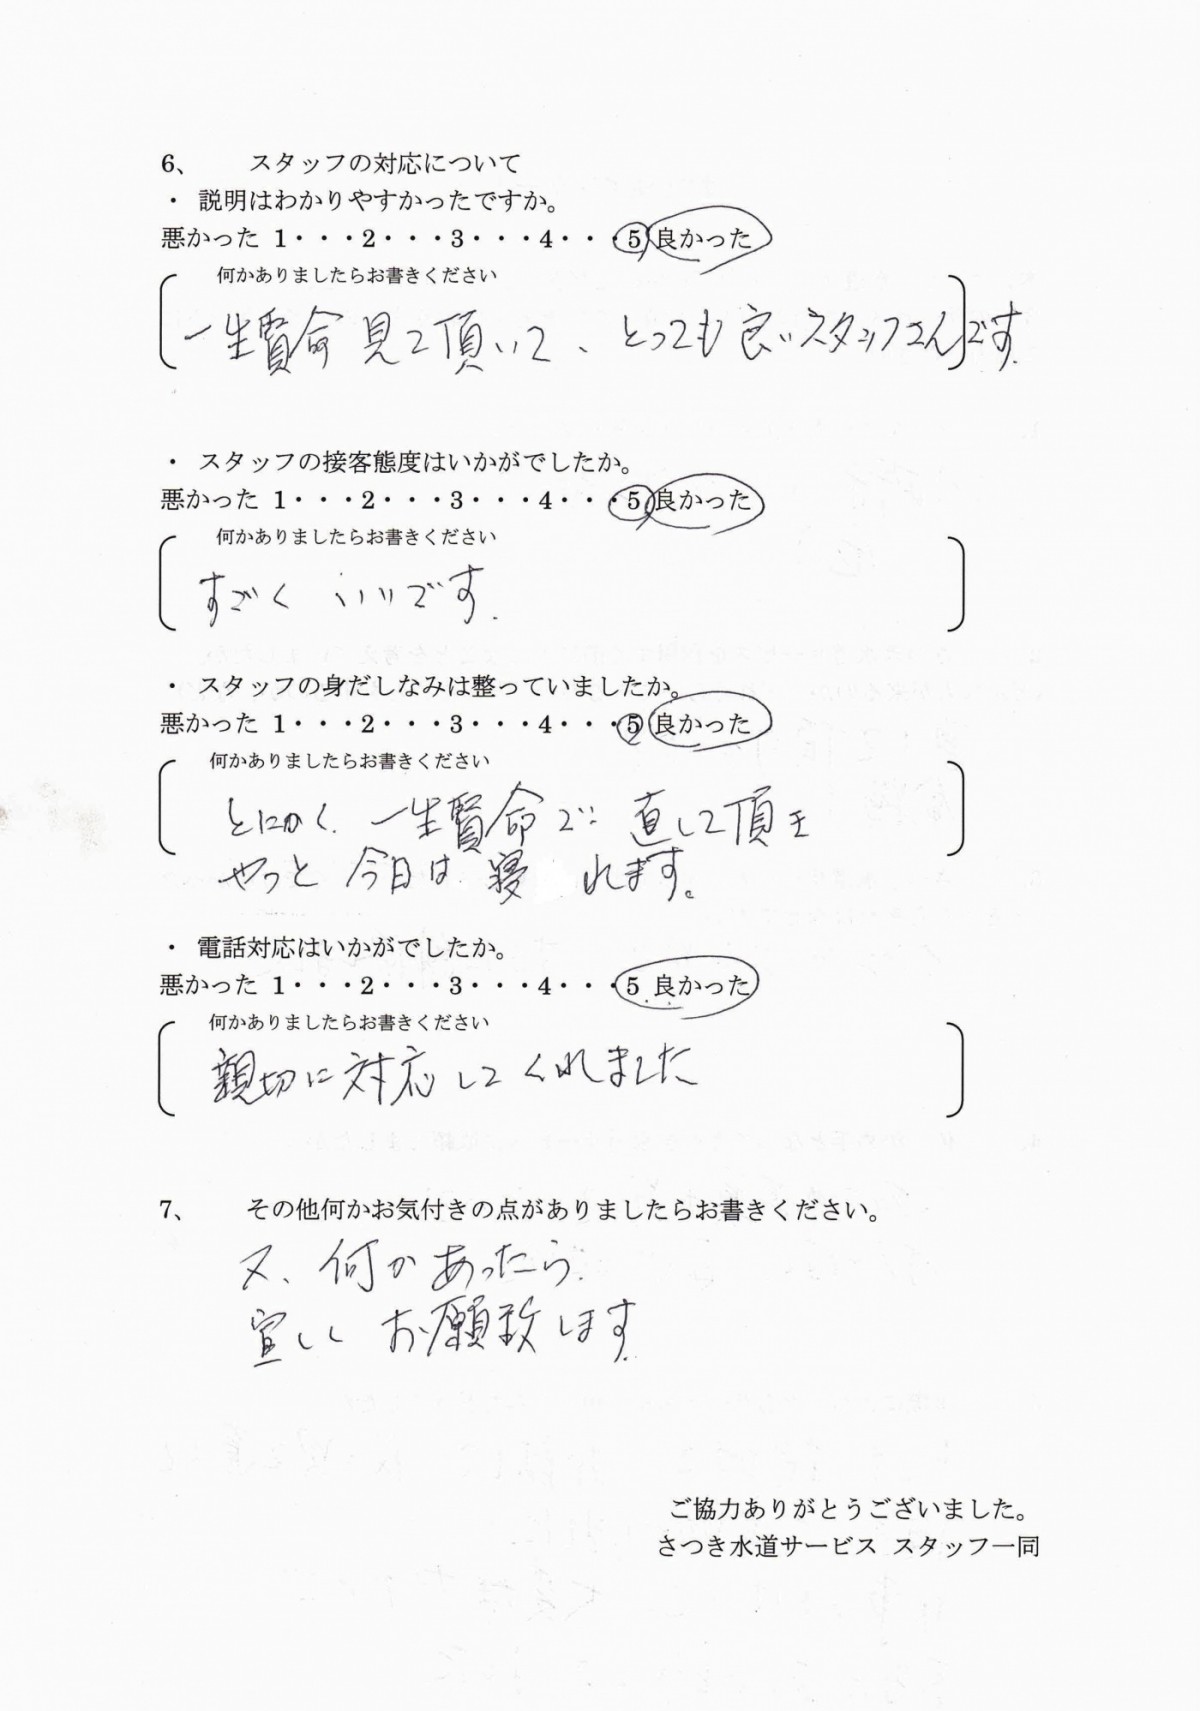 6、 スタッフの対応について
・ 説明はわかりやすかったですか。
悪かった 1・・・2・・・3・・・4・・・5 良かった
何かありましたらお書きください
一生賢命見て頂いて、とっても良いスタッフさんです.
・ スタッフの接客態度はいかがでしたか。
悪かった 1・・・2・・・3・・・4・・・5 良かった
何かありましたらお書きください
すごく いいです.
・ スタッフの身だしなみは整っていましたか。
悪かった 1・・・2・・・3・・・4・・・5 良かった
何かありましたらお書きください
とにかく、一生賢命で 直して頂き
やっと 今日は 寝 れます。
・ 電話対応はいかがでしたか。
悪かった 1・・・2・・・3・・・4・・・5 良かった
何かありましたらお書きください
親切に対応してくれました
7、 その他何かお気付きの点がありましたらお書きください。
又、何かあったら
宜しく お願致します.
ご協力ありがとうございました。
さつき水道サービス スタッフ一同